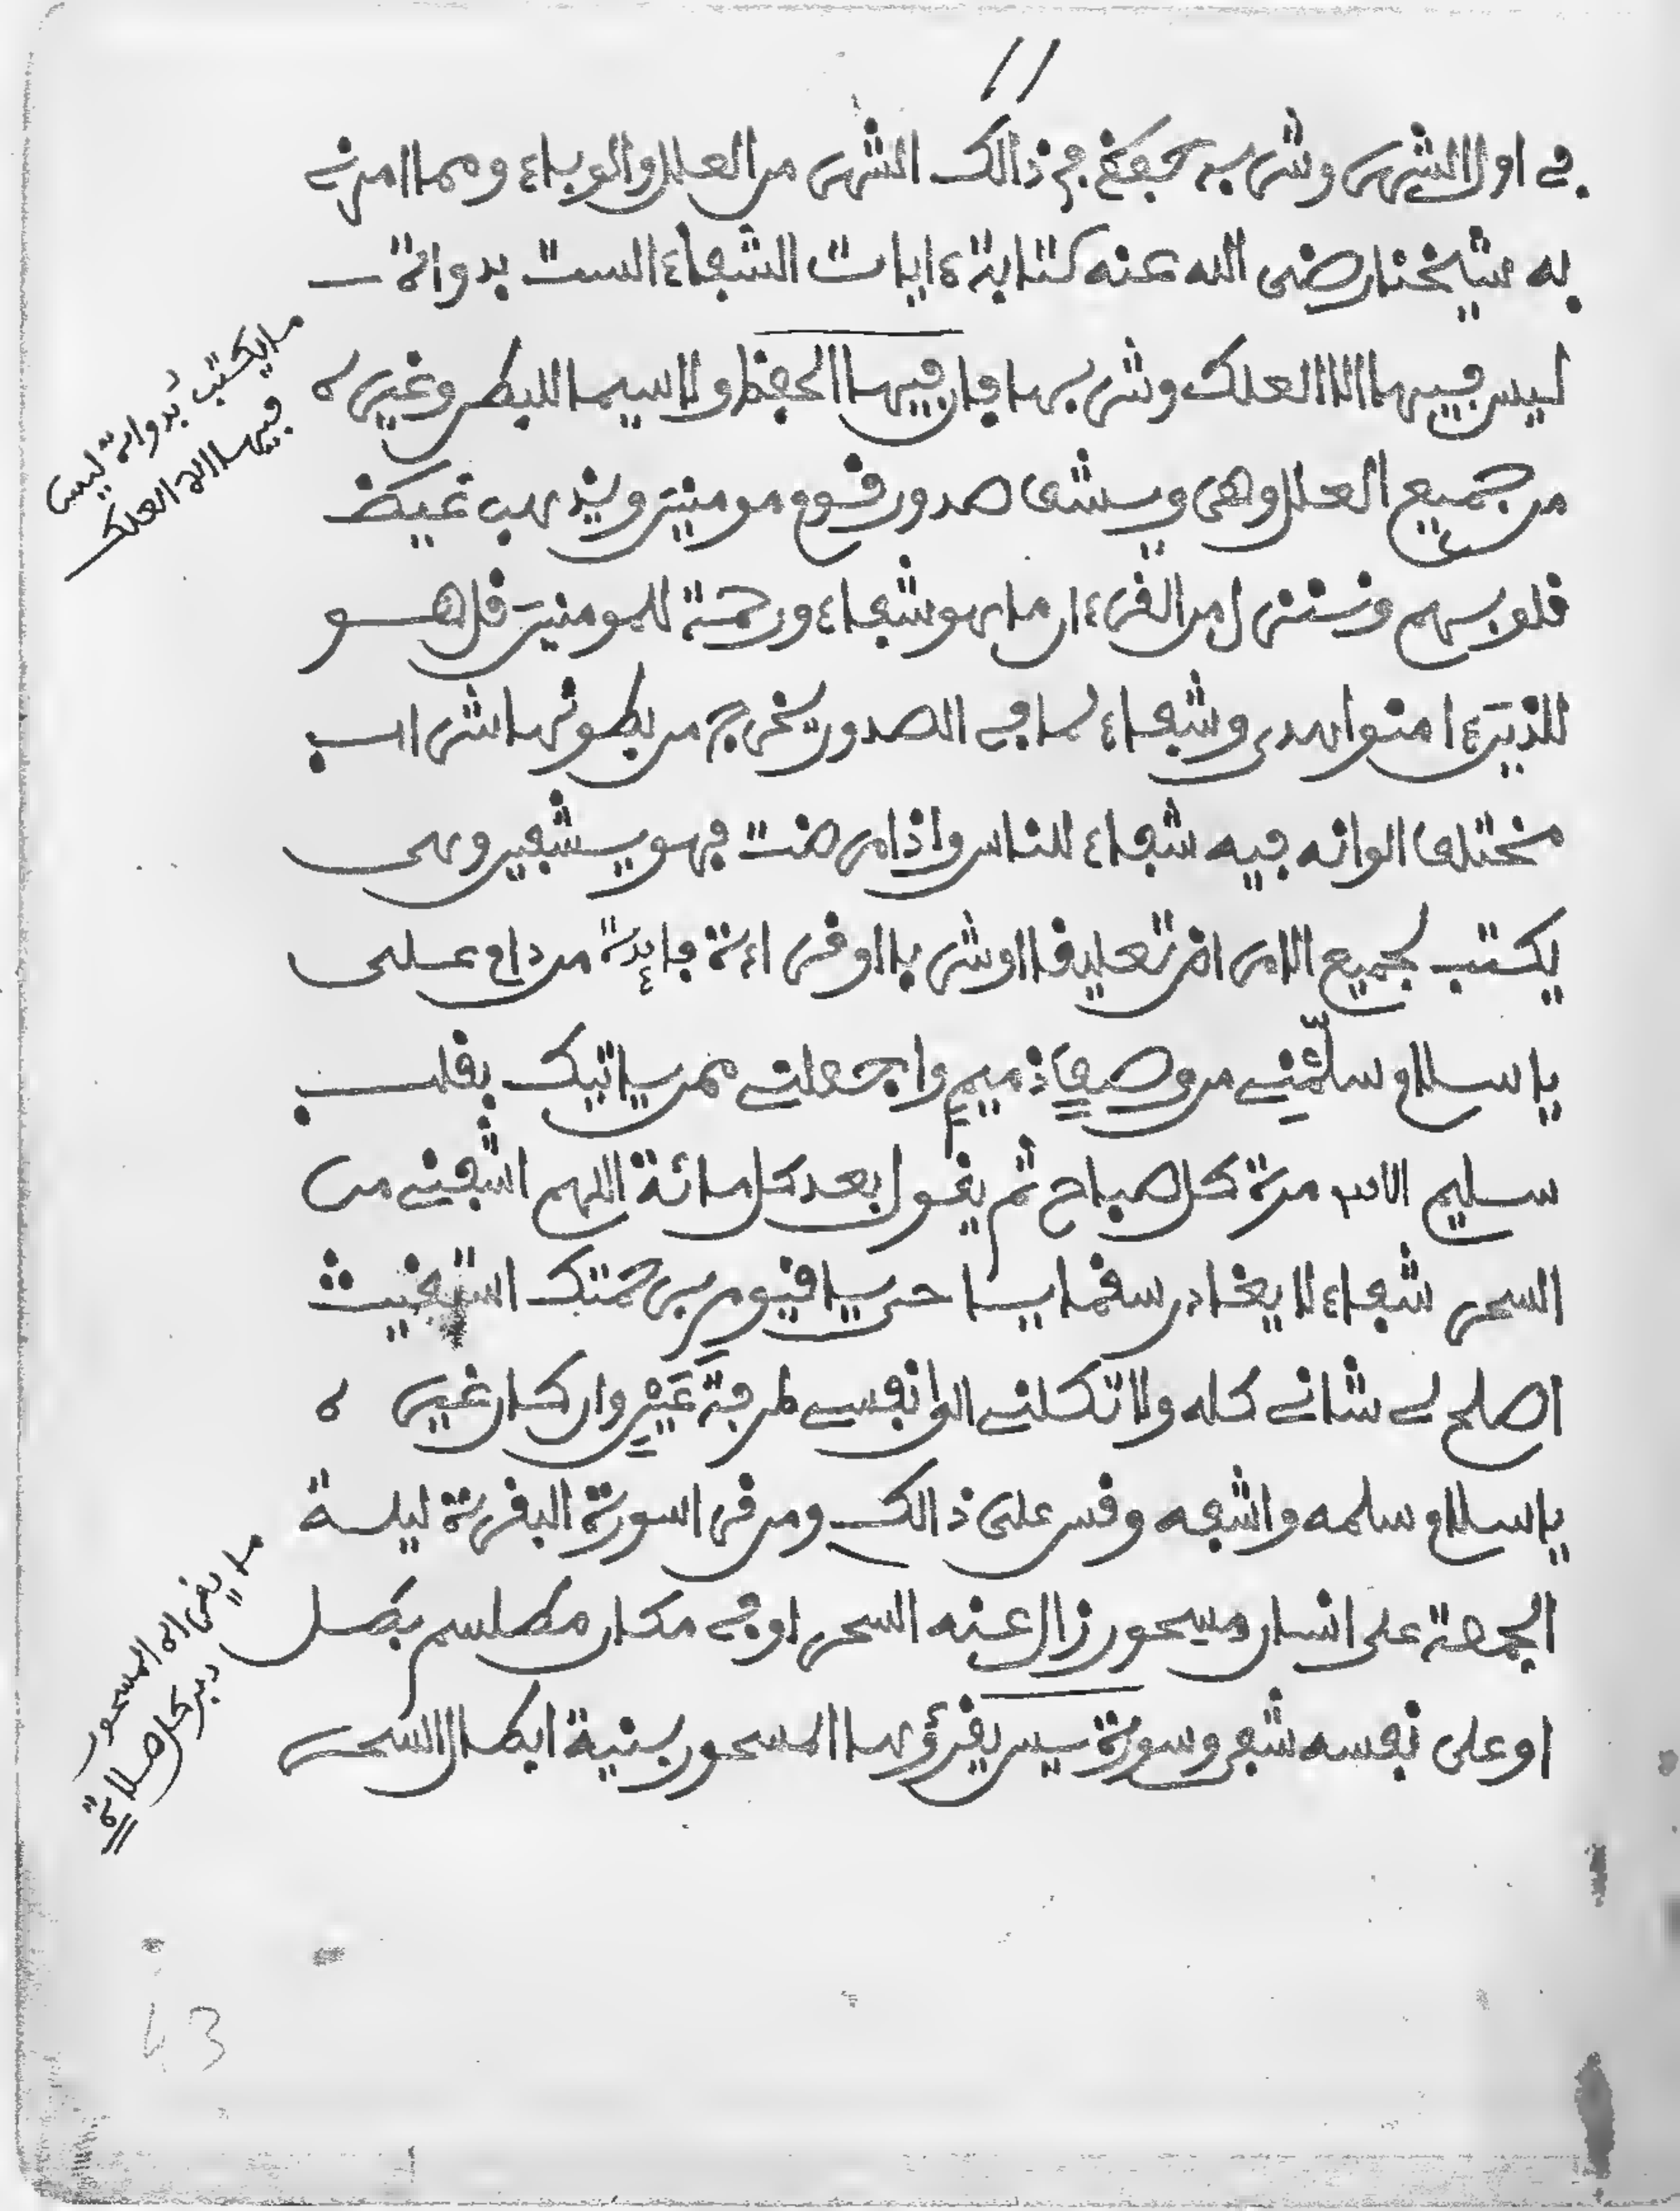 ١١
في اول الشهر وشربه حفظ في ذالك الشهر من العلل والوباء ومما امرني
به شيخنا رضى الله عنه كتابة ءايات الشفاء الست بدواة
ليس فيها الا العلك وشربها فان فيها الحفظ ولا سيما للبطن وغيره
من جميع العلل وهى ويشف صدور قوم مومنين ويذهب غيظ
قلوبهم وننزل من القرءان ما هو شفاء ورحمة للمومنين قل هو
للذين ءامنوا هدى وشفاء لما في الصدور يخرج من بطونها شراب
مختلف الوانه فيه شفاء للناس واذا مرضت فهو يشفين وهى
يكتب لجميع الامراض تعليقا او شربا او قراءة فايدة من دام على
يا سلام سلمني من وصف ذميم واجعلني ممن ياتيك بقلب
سليم مرة كل صباح ثم يقول بعد كل مائة اللهم اشفني من
السحر شفاء لا يغادر سقما يا حى يا قيوم برحمتك استغيث
اصلح لي شاني كله ولا تكلني الى نفسي طرفة عين وان كان غيره
يا سلام سلمه واشفه وقس على ذالك ومن قرا سورة البقرة ليلة
الجمعة على انسان مسحور زال عنه السحر او في مكان مطلسم بطل
او على نفسه شفي وسورة يس يقرؤها المسحور بنية ابطال السحر
ما يكتب بدواة ليس
فيها الا العلك
ما يقراه المسحور
دبر كل صلاة
43